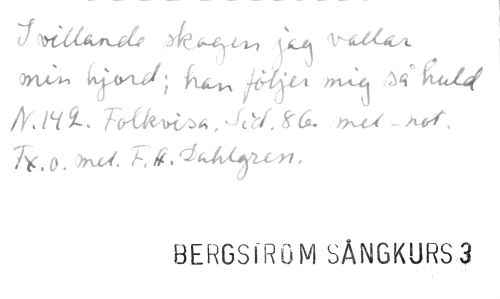 I villande skogen jag vallar
min hjord; han följer mig så huld
N. 142. Folkvisa. Sid. 86. mel-not.
Tx. o. mel. F. A. Dahlgren.
BERGSTRÖM SÅNGKURS 3